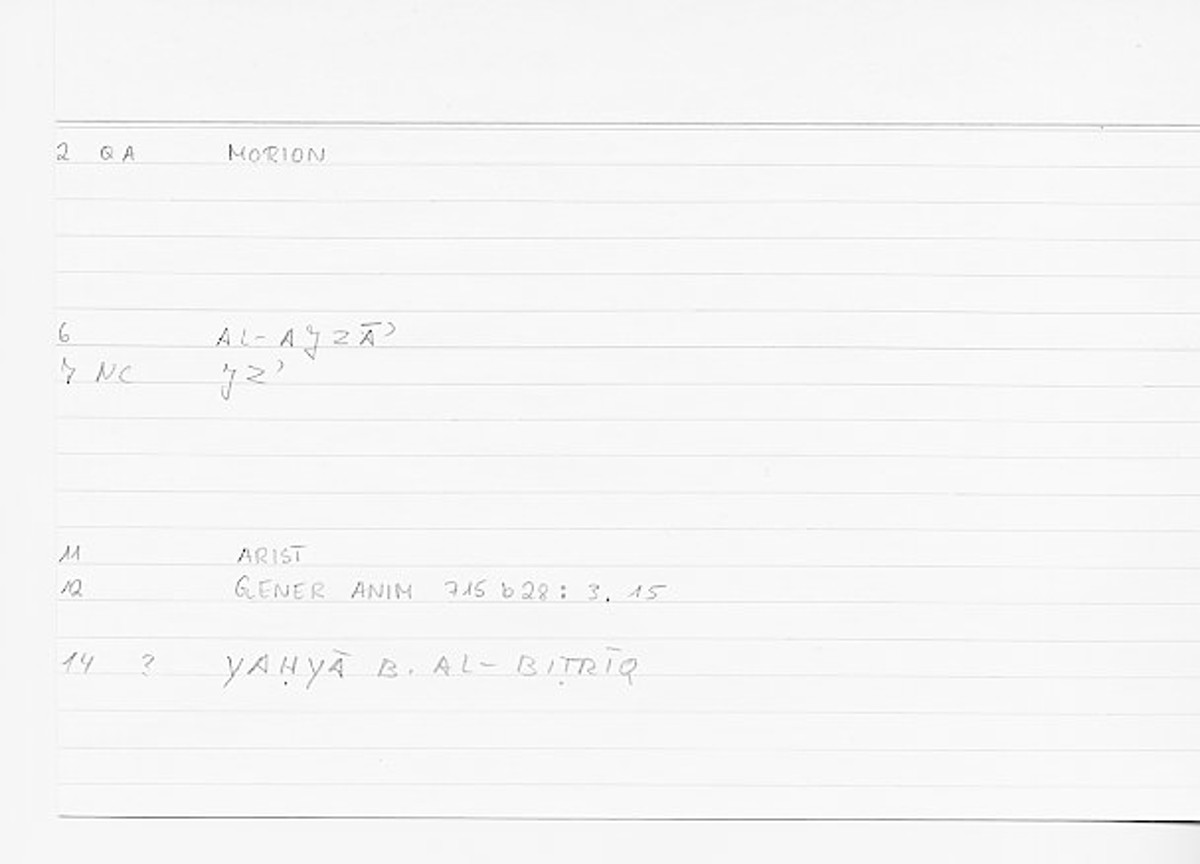 2 QA MORION
6 AL-AǦZĀʾ
7 NC ǦZʾ
11 ARIST
12 GENER ANIM 715 b 28 : 3. 15
14 ? YAḤYĀ B. AL-BIṬRĪQ